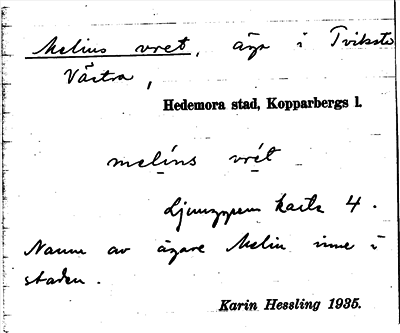 Melins vret, äga i Tviksta
Västra,
Hedemora stad, Kopparbergs l.
melíns vrét
Ljunggrens karta 4.
Namn av ägare Melin inne i
staden.
Karin Hessling 1935.